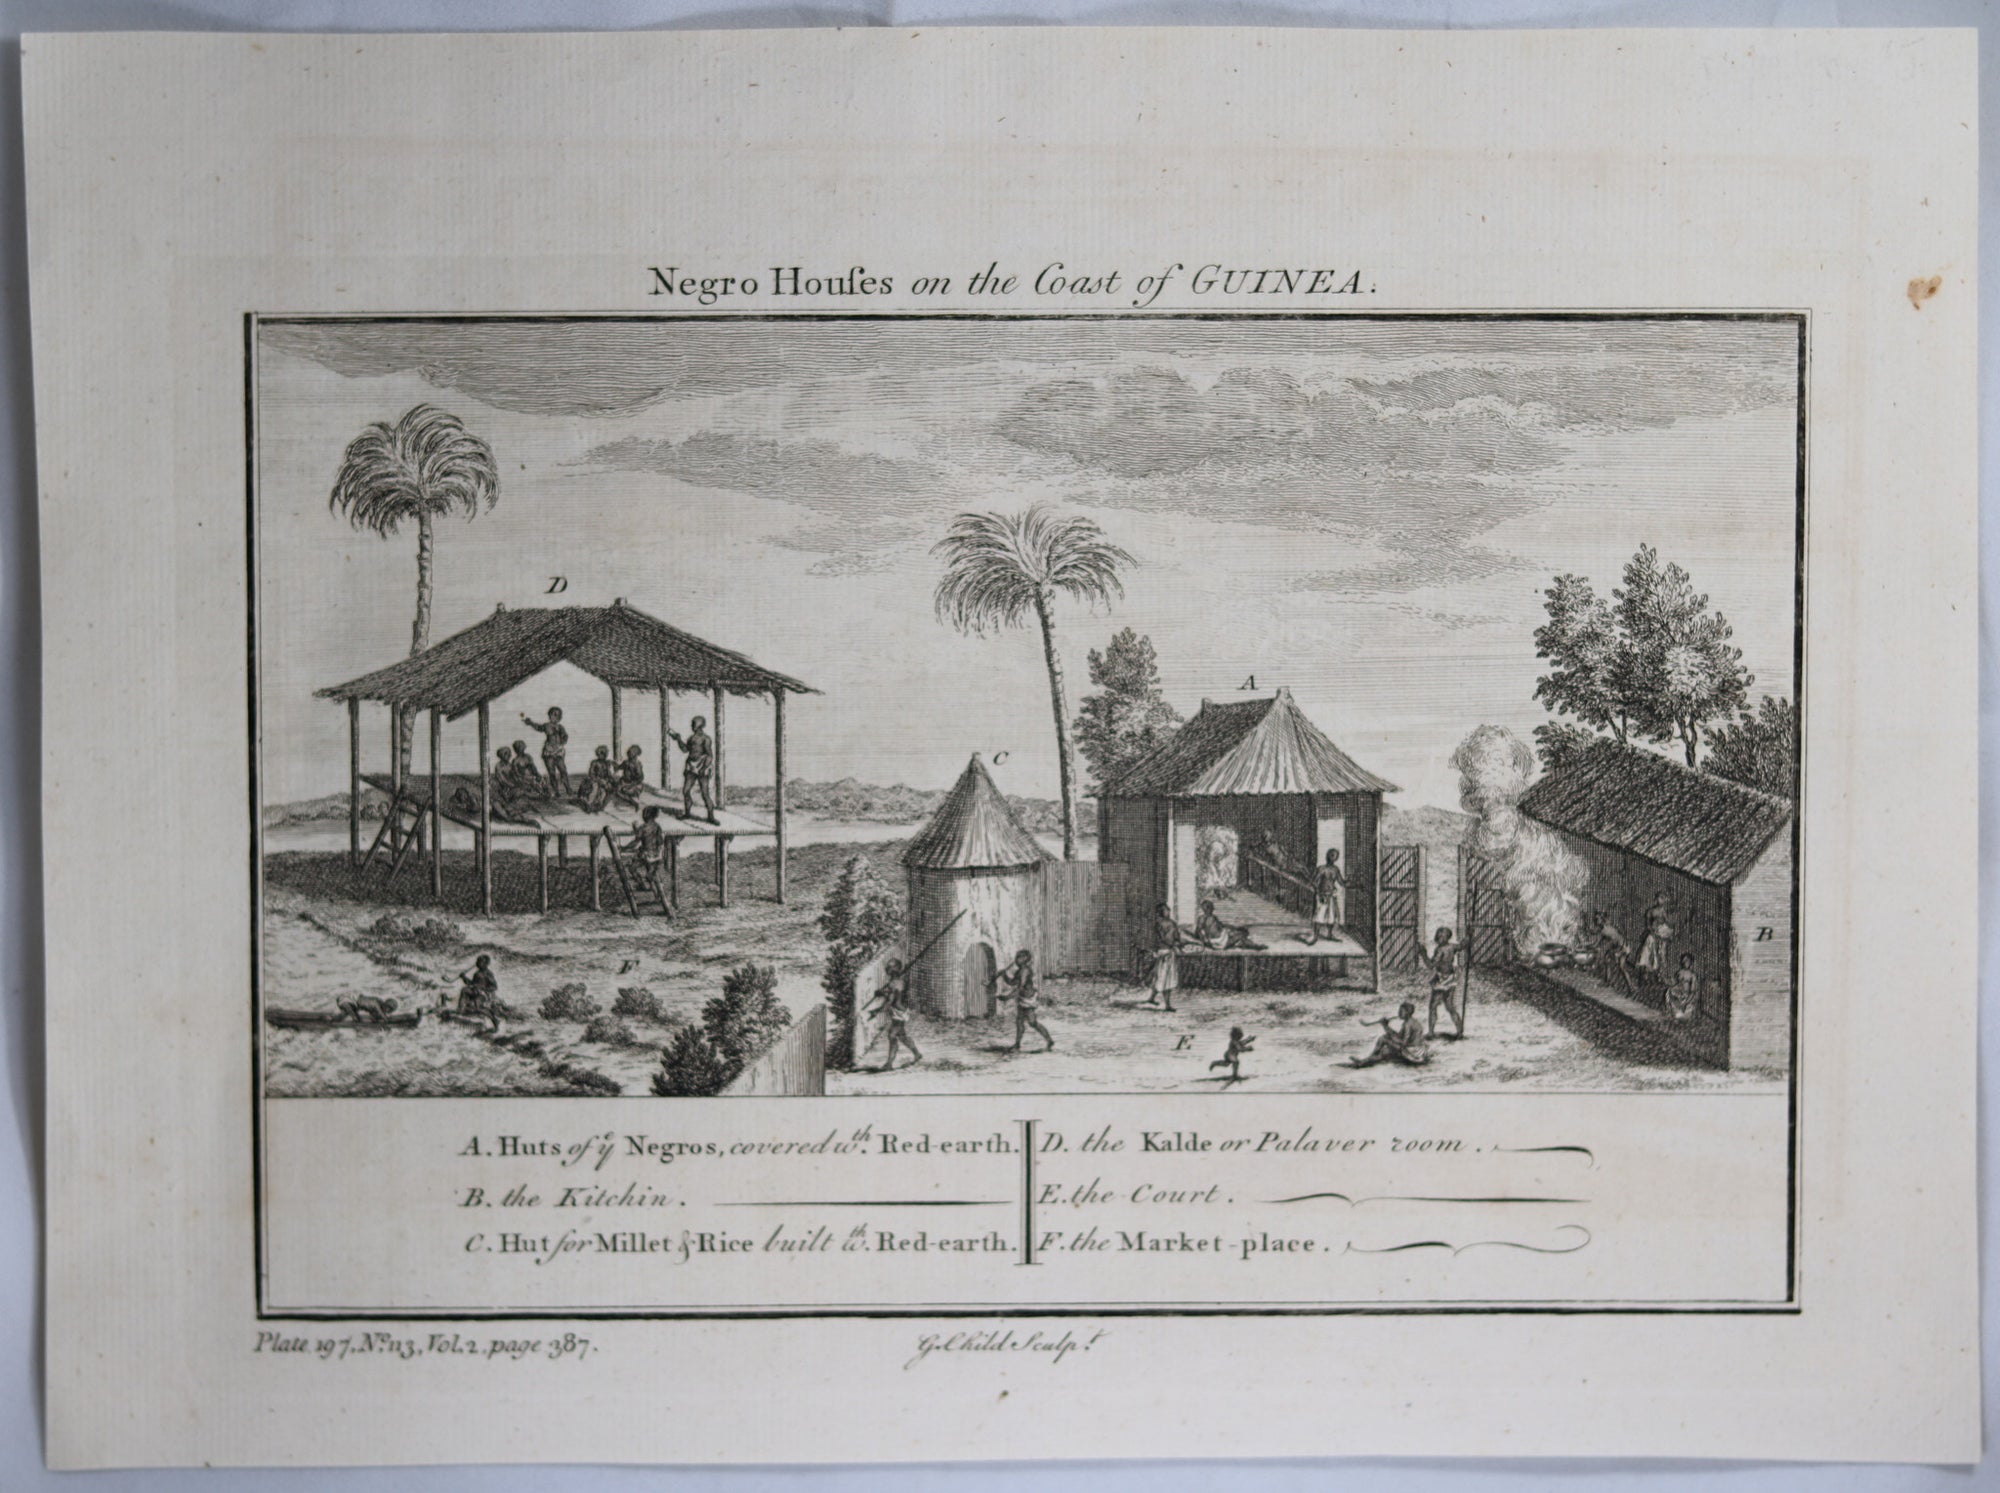 Negro Houſes on the Coast of GUINEA.
D
A
C
B
F
E
A. Huts of yᵉ Negros, covered wᵗʰ. Red-earth.
B. the Kitchin.
C. Hut for Millet & Rice built wᵗʰ. Red-earth.
D. the Kalde or Palaver room.
E. the Court.
F. the Market-place.
Plate 197. Nº. 113, Vol. 2. page 387.
G. Child Sculpᵗ.